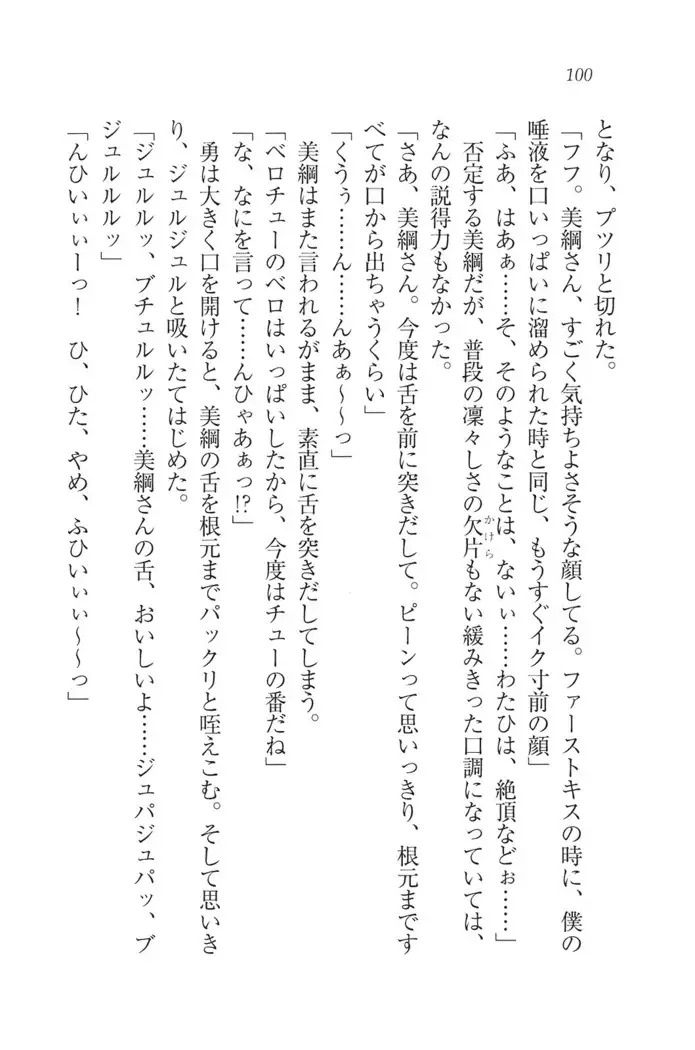 100
となり、プツリと切れた。
「フフ。美綱さん、すごく気持ちよさそうな顔してる。ファーストキスの時に、僕の
唾液を口いっぱいに溜められた時と同じ、もうすぐイク寸前の顔」
「ふあ、はあぁ……そ、そのようなことは、ないぃ……わたひは、絶頂などぉ……」
否定する美綱だが、普段の凜々しさの欠片もない緩みきった口調になっていては、
かけら
なんの説得力もなかった。
「さあ、美綱さん。今度は舌を前に突きだして。ピーンって思いっきり、根元まです
べてが口から出ちゃうくらい」
「くうぅ……ん……んあぁ〜〜っ」
美綱はまた言われるがまま、素直に舌を突きだしてしまう。
「ベロチューのベロはいっぱいしたから、今度はチューの番だね」
「な、なにを言って……んひゃあぁっ!?」
勇は大きく口を開けると、美綱の舌を根元までパックリと咥えこむ。そして思いき
り、ジュルジュルと吸いたてはじめた。
「ジュルルッ、ブチュルルッ……美綱さんの舌、おいしいよ……ジュパジュパッ、ブ
ジュルルルッ」
「んひいぃぃーっ！　ひ、ひた、やめ、ふひいぃぃ〜〜っ」